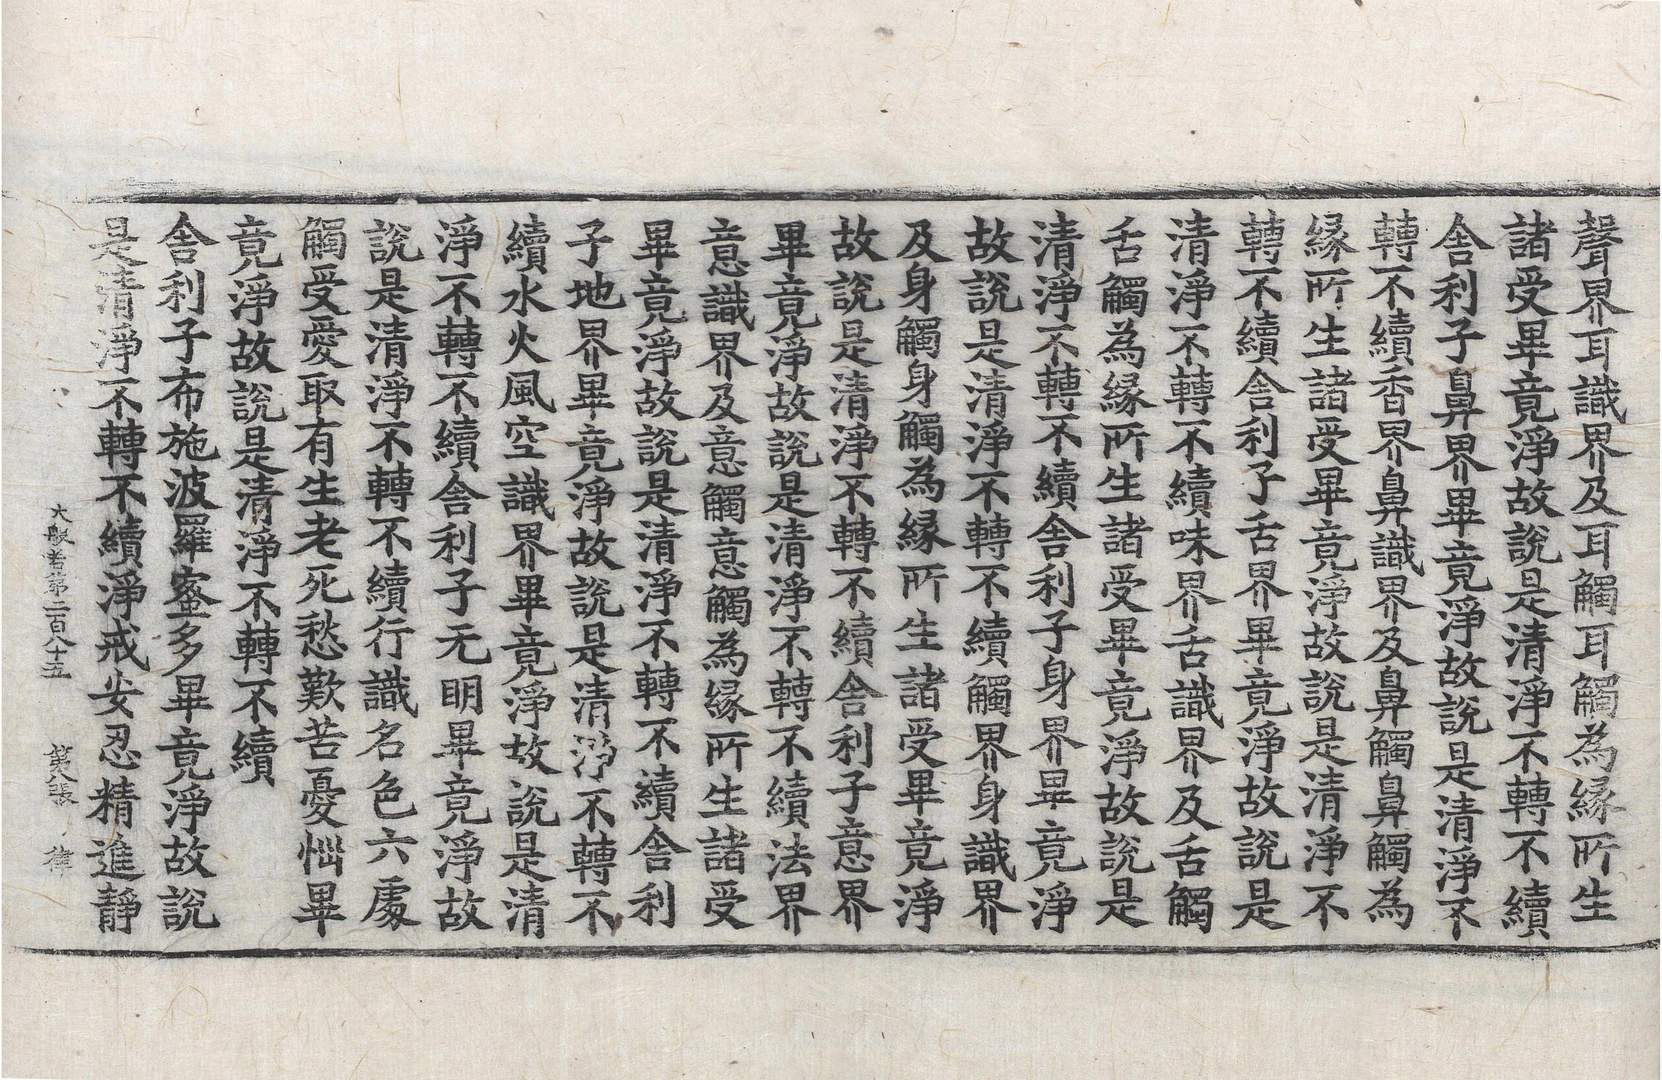 聲界耳識界及耳觸耳觸為緣所生
諸受畢竟淨故說是清淨不轉不續
舍利子鼻界畢竟淨故說是清淨不
轉不續香界鼻識界及鼻觸鼻觸為
緣所生諸受畢竟淨故說是清淨不
轉不續舍利子舌界畢竟淨故說是
清淨不轉不續味界舌識界及舌觸
舌觸為緣所生諸受畢竟淨故說是
清淨不轉不續舍利子身界畢竟淨
故說是清淨不轉不續觸界身識界
及身觸身觸為緣所生諸受畢竟淨
故說是清淨不轉不續舍利子意界
畢竟淨故說是清淨不轉不續法界
意識界及意觸意觸為緣所生諸受
畢竟淨故說是清淨不轉不續舍利
子地界畢竟淨故說是清淨不轉不
續水火風空識界畢竟淨故說是清
淨不轉不續舍利子无明畢竟淨故
說是清淨不轉不續行識名色六處
觸受愛取有生老死愁歎苦憂惱畢
竟淨故說是清淨不轉不續
舍利子布施波羅蜜多畢竟淨故說
是清淨不轉不續淨戒安忍精進靜
大般若第二百八十五 第八張 律